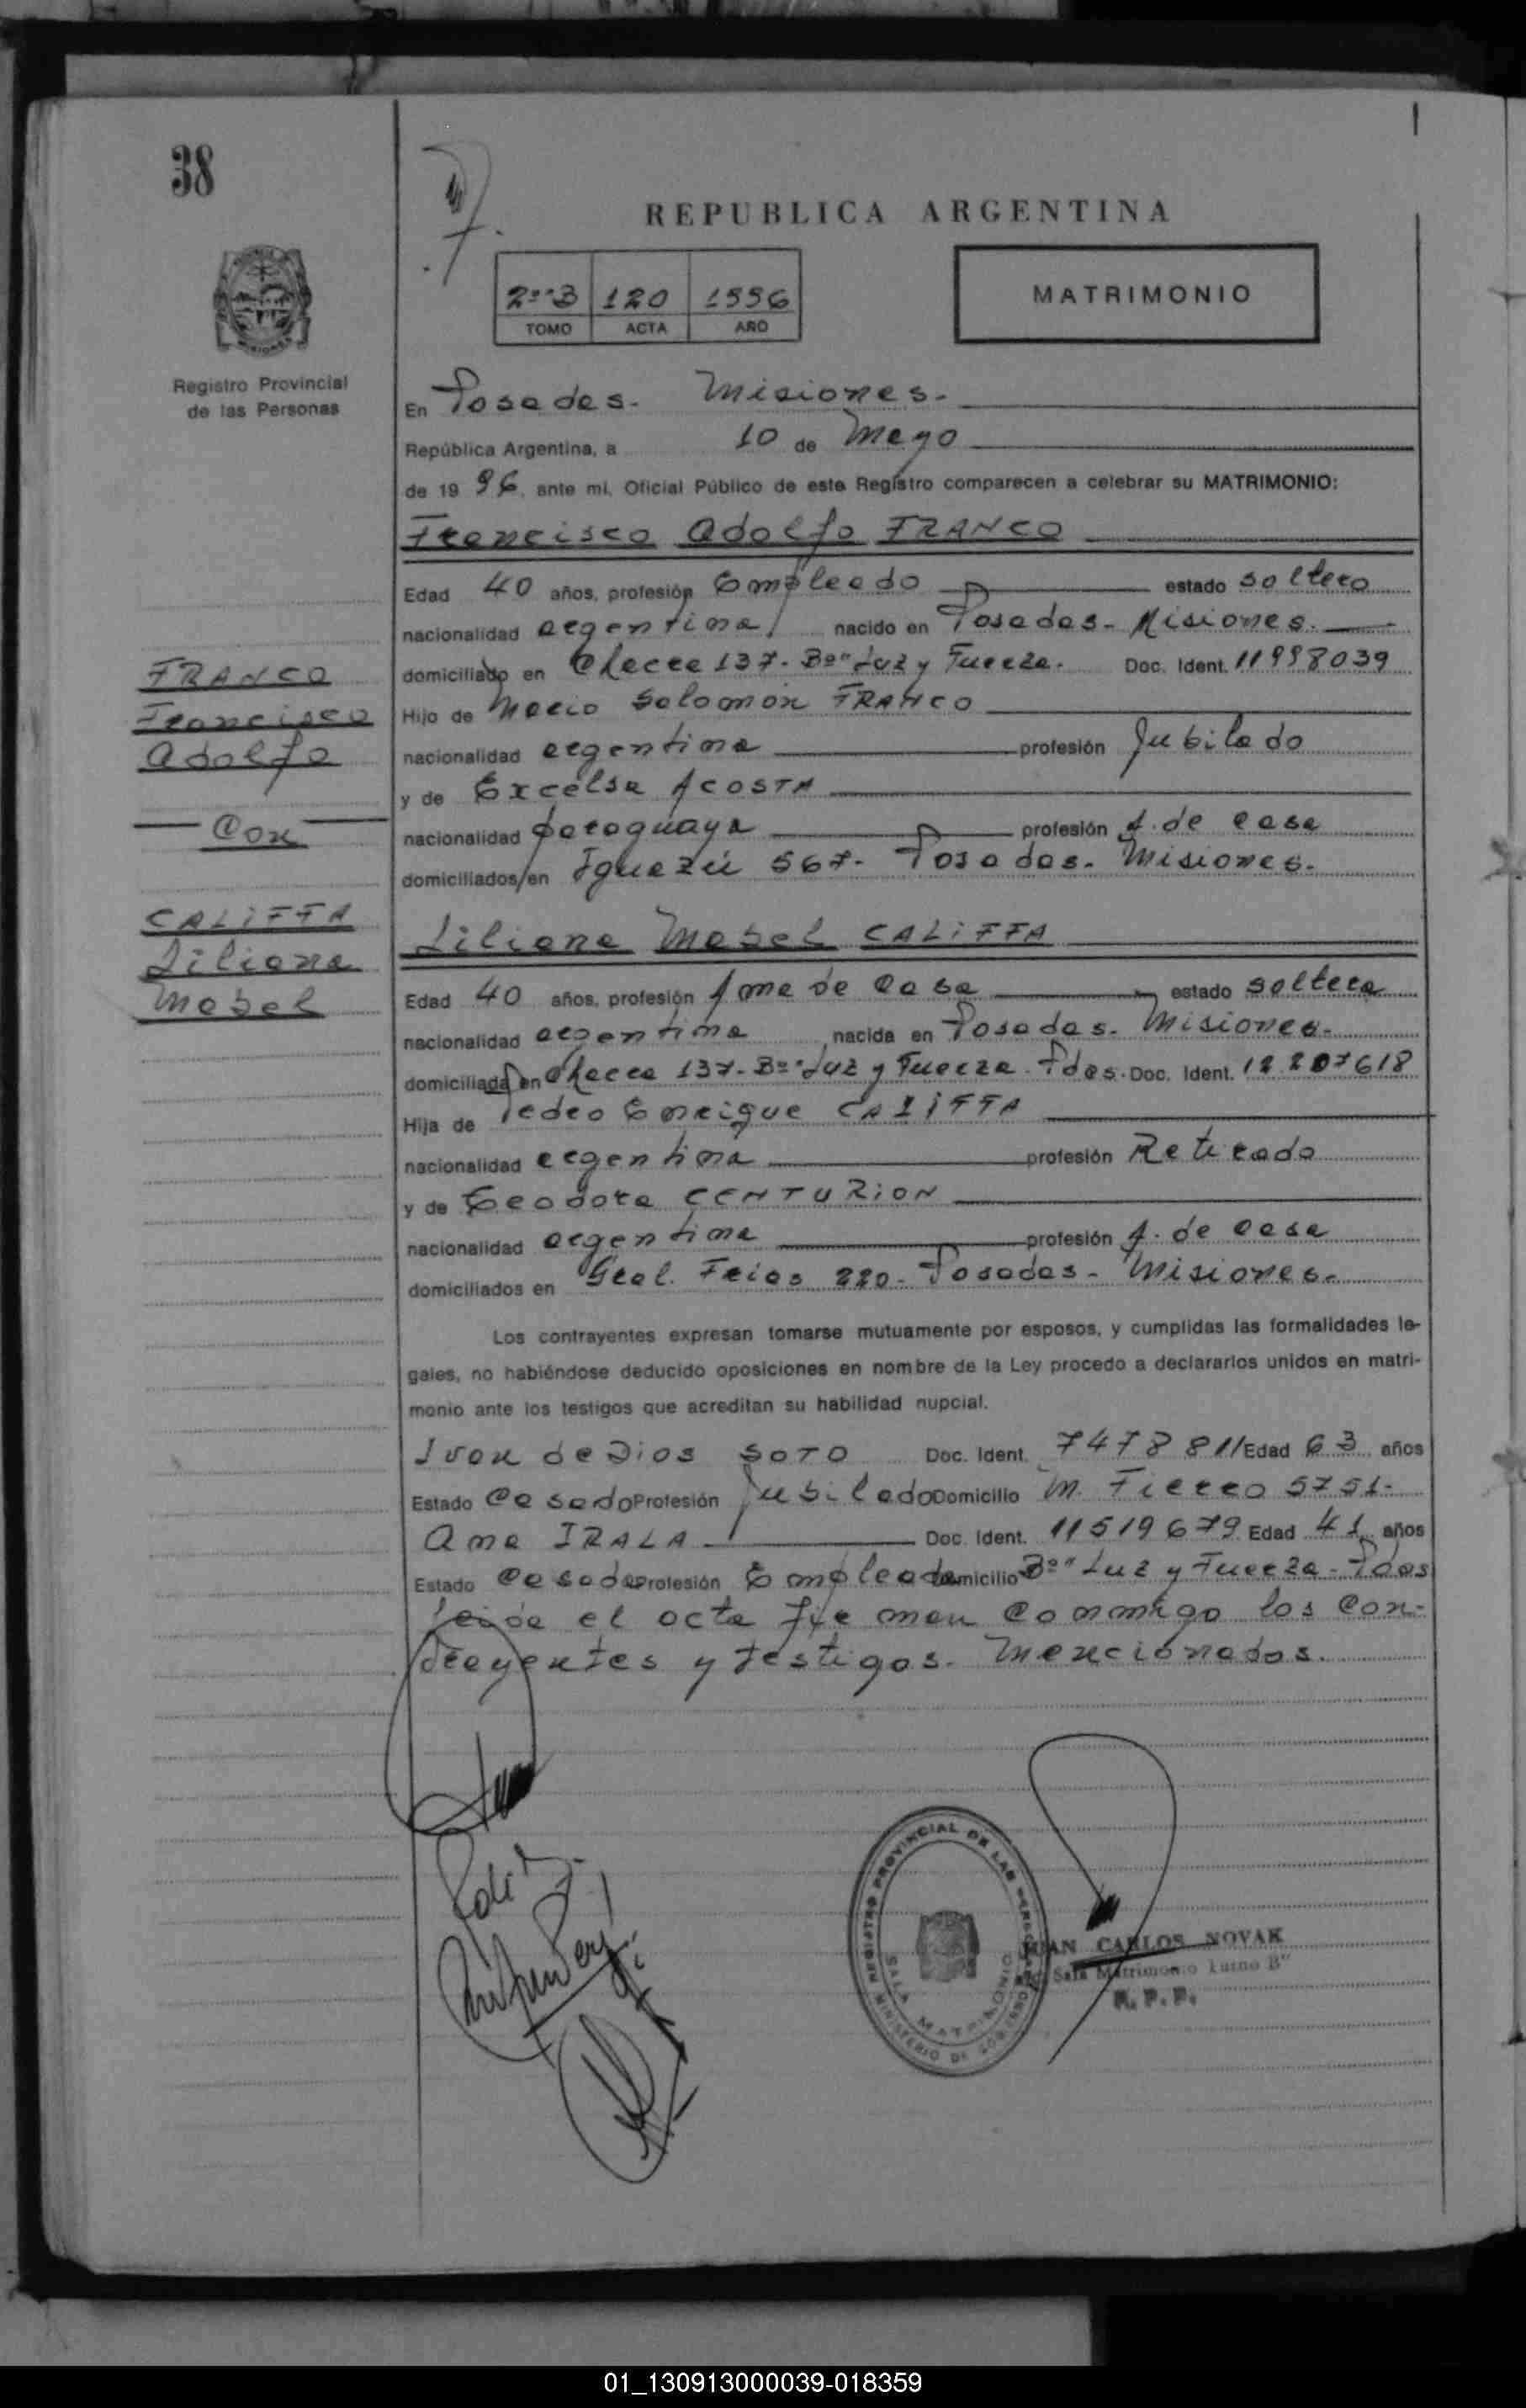 38
REPUBLICA ARGENTINA
2º"B 120 1996
TOMO ACTA AÑO
MATRIMONIO
Registro Provincial
de las Personas
En Posadas - Misiones.-
República Argentina, a 10 de Mayo
de 19 96, ante mí, Oficial Público de este Registro comparecen a celebrar su MATRIMONIO:
Francisco Adolfo FRANCO
Edad 40 años, profesión Empleado estado soltero
nacionalidad argentina nacido en Posadas - Misiones.
domiciliado en Checca 137 - Bº" Luz y Fuerza. Doc. Ident. 11998039
Hijo de Mario Salomón FRANCO
nacionalidad argentina profesión Jubilado
y de Excelsa ACOSTA
nacionalidad paraguaya profesión A. de casa
domiciliados en Iguazú 567 - Posadas - Misiones.
FRANCO
Francisco
Adolfo
Con
CALIFFA
Liliana
Mabel
Liliana Mabel CALIFFA
Edad 40 años, profesión Ama de casa estado soltera
nacionalidad argentina nacida en Posadas - Misiones.
domiciliada en Checca 137 - Bº" Luz y Fuerza - Pdas. Doc. Ident. 12.207618
Hija de Pedro Enrique CALIFFA
nacionalidad argentina profesión Retirado
y de Teodora CENTURION
nacionalidad argentina profesión A. de casa
domiciliados en Gral. Frias 220 - Posadas - Misiones.
Los contrayentes expresan tomarse mutuamente por esposos, y cumplidas las formalidades le-
gales, no habiéndose deducido oposiciones en nombre de la Ley procedo a declararlos unidos en matri-
monio ante los testigos que acreditan su habilidad nupcial.
Juan de Dios SOTO Doc. Ident. 7478811 Edad 63 años
Estado Casado Profesión Jubilado Domicilio M. Fierro 5751-
Ana IRALA Doc. Ident. 11519679 Edad 41 años
Estado Casada Profesión Empleada Domicilio Bº" Luz y Fuerza - Pdas
Leída el acta firman conmigo los con-
trayentes y testigos. Mencionados.
REGISTRO PROVINCIAL DE LAS PERSONAS
SALA MATRIMONIO
MINISTERIO DE GOBIERNO
JUAN CARLOS NOVAK
Sala Matrimonio Turno B"
R. P. P.
01_130913000039-018359